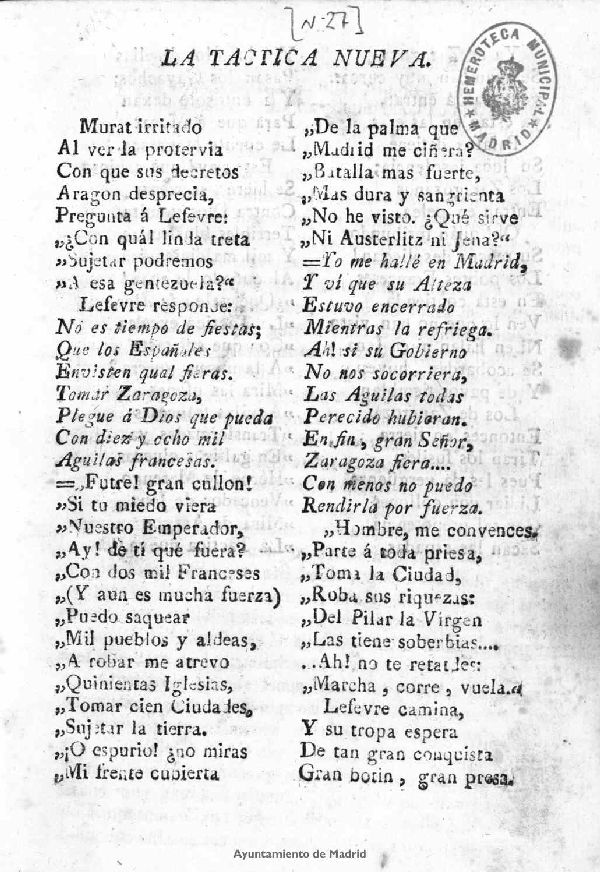 [N. 27]
LA TACTICA NUEVA.
HEMEROTECA MUNICIPAL
*MADRID*
Murat irritado
Al ver la protervia
Con que sus decretos
Aragon desprecia,
Pregunta á Lefevre:
„¿Con quál linda treta
„Sujetar podremos
„A esa gentezuela?“
Lefevre responde:
No es tiempo de fiestas;
Que los Españoles
Envisten qual fieras.
Tomar Zaragoza,
Plegue á Dios que pueda
Con diez y ocho mil
Aguilas francesas.
=„Futre! gran cullon!
„Si tu miedo viera
„Nuestro Emperador,
„Ay! de ti qué fuera?
„Con dos mil Franceses
„(Y aun es mucha fuerza)
„Puedo saquear
„Mil pueblos y aldeas,
„A robar me atrevo
„Quinientas Iglesias,
„Tomar cien Ciudades,
„Sujetar la tierra.
„¡O espurio! ¿no miras
„Mi frente cubierta
„De la palma que
„Madrid me ciñera?
„Batalla mas fuerte,
„Mas dura y sangrienta
„No he visto. ¿Qué sirve
„Ni Austerlitz ni Jena?“
=Yo me hallé en Madrid,
Y ví que su Alteza
Estuvo encerrado
Mientras la refriega.
Ah! si su Gobierno
No nos socorriera,
Las Aguilas todas
Perecido hubieran.
En fin, gran Señor,
Zaragoza fiera....
Con menos no puedo
Rendirla por fuerza.
„Hombre, me convences.
„Parte á toda priesa,
„Toma la Ciudad,
„Roba sus riquezas:
„Del Pilar la Virgen
„Las tiene soberbias....
„Ah! no te retardes:
„Marcha, corre, vuela.“
Lefevre camina,
Y su tropa espera
De tan gran conquista
Gran botin, gran presa.
Ayuntamiento de Madrid